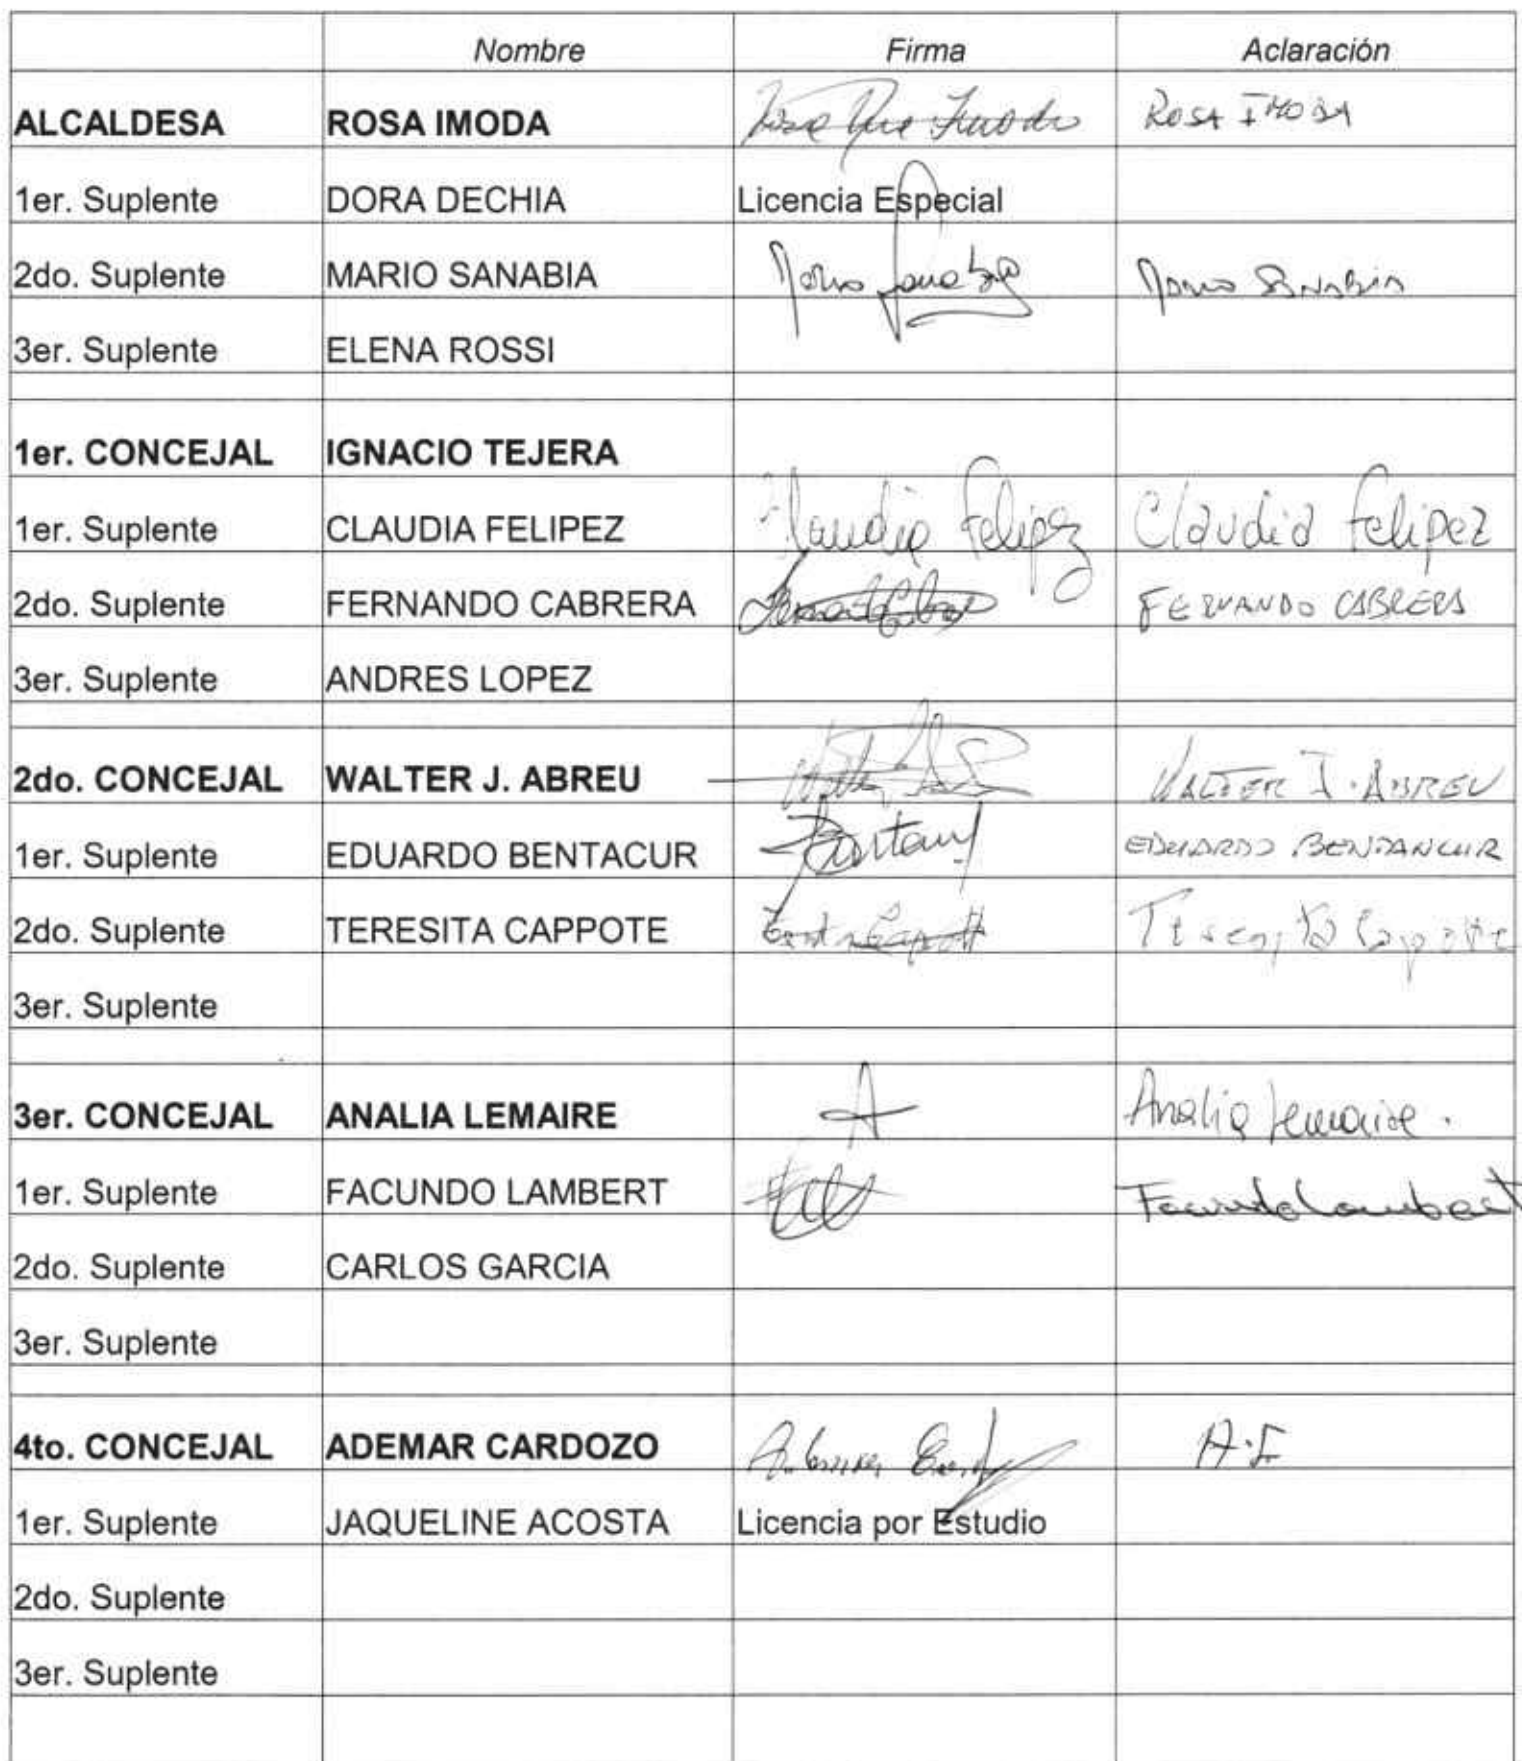 Nombre Firma Aclaración
ALCALDESA ROSA IMODA Rosa Imoda ROSA IMODA
1er. Suplente DORA DECHIA Licencia Especial
2do. Suplente MARIO SANABIA Mario Sanabia Mario Sanabia
3er. Suplente ELENA ROSSI
1er. CONCEJAL IGNACIO TEJERA
1er. Suplente CLAUDIA FELIPEZ Claudia Felipez Claudia Felipez
2do. Suplente FERNANDO CABRERA FERNANDO CABRERA
3er. Suplente ANDRES LOPEZ
2do. CONCEJAL WALTER J. ABREU WALTER J. ABREU
1er. Suplente EDUARDO BENTACUR EDUARDO BENTANCUR
2do. Suplente TERESITA CAPPOTE Teresita Capote
3er. Suplente
3er. CONCEJAL ANALIA LEMAIRE A Analia Lemaire.
1er. Suplente FACUNDO LAMBERT Facundo Lambert
2do. Suplente CARLOS GARCIA
3er. Suplente
4to. CONCEJAL ADEMAR CARDOZO
1er. Suplente JAQUELINE ACOSTA Licencia por Estudio
2do. Suplente
3er. Suplente